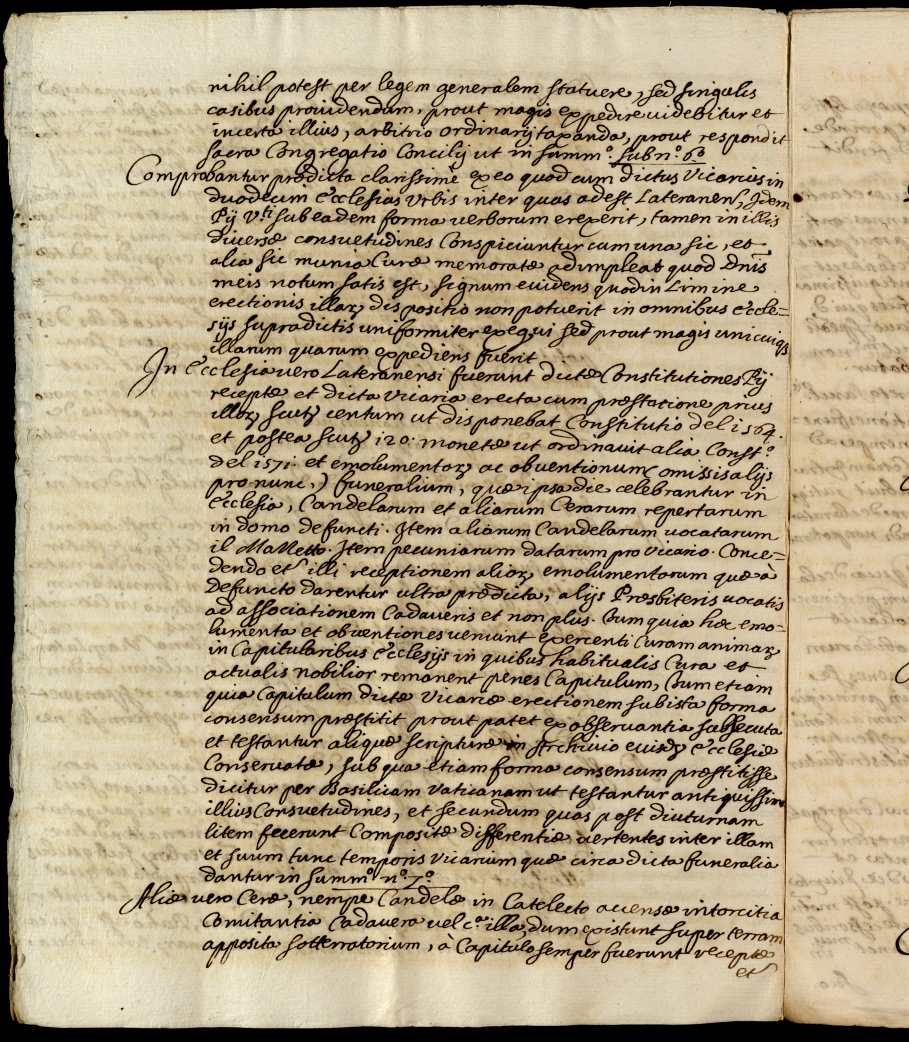 nihil potest per legem generalem statuere, sed singulis
casibus prouidendum, prout magis expedire uidebitur et
incerta illius, arbitrio ordinarij taxanda, prout respondit
sacra Congregatio Concilij ut in summ.º sub n.º 6.º
Comprobantur prædicta clarissimè ex eo quod cum dictus Vicarius in
duodecim Ecclesias Vrbis inter quas adest Lateranen, Idem
Pij V.ti sub eadem forma uerborum erexerit, tamen in illis
diuersæ consuetudines Conspiciuntur cum una sic, et
alia sic munia Curæ memoratæ adimpleat quod Dnis
meis notum satis est, signum euidens quod in Limine
erectionis illarz dispositio non potuerit in omnibus Eccle=
sijs supradictis uniformiter exequi sed prout magis unicuiqz
illarum quarum expediens fuerit
In Ecclesia uero Lateranensi fuerunt dictæ Constitutiones Pij
receptæ et dicta Vicaria erecta cum præstatione prius
illorz scutz centum ut disponebat Constitutio del 1564.
et postea scutz 120. monetæ ut ordinauit alia Const.º
del 1571. et emolumentorz ac obuentionum (omissis alijs
pro nunc,) funeralium, quæ ipsa die celebrantur in
Ecclesia, Candelarum et aliarum Cerarum repertarum
in domo defuncti. Item aliarum Candelarum uocatarum
il Mazzetto. Item pecuniarum datarum pro Vicario. Conce=
dendo et illi receptionem aliorz emolumentorum quæ à
Defuncto darentur ultra prædicta, alijs Præsbiteris uocatis
ad associationem Cadaueris et non plus. Tum quia hæc emo=
lumenta et obuentiones ueniunt exercenti Curam animarz
in Capitularibus Ecclesijs in quibus habitualis Cura et
actualis nobilior remanent penes Capitulum, Tum etiam
quia Capitulum dictæ Vicariæ erectionem sub ista forma
consensum præstitit prout patet ex obseruantia subsecuta
et testantur aliquæ scripturæ in Archiuio euisdz Ecclesiæ
Conseruatæ, sub qua etiam forma consensum præstitisse
dicitur per Basilicam Vaticanam ut testantur antiquissimæ
illius Consuetudines, et secundum quas post diuturnam
litem fecerunt Compositæ differentiæ uertentes inter illam
et suum tunc temporis Vicarum quæ circa dicta funeralia
dantur in summ.º n.º 7.º
Aliæ uero Ceræ, nempe Candelæ in Catelecto accensæ intorcitia
Comitantia Cadauera uel c.ª illa, dum existunt super terram
apposita sotterratorium, à Capitulo semper fuerunt receptæ
et